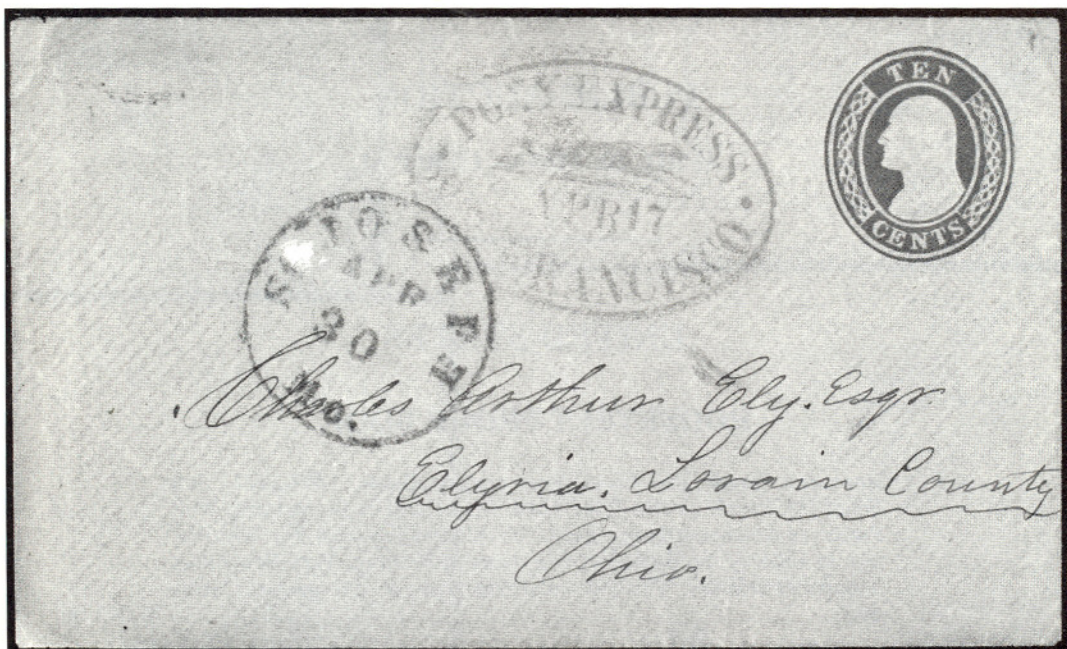 TEN
CENTS
PONY EXPRESS
APR 17
FRANCISCO
ST JOSEPH
APR
30
Mo.
Charles Arthur Ely. Esqr.
Elyria. Lorain County
Ohio.